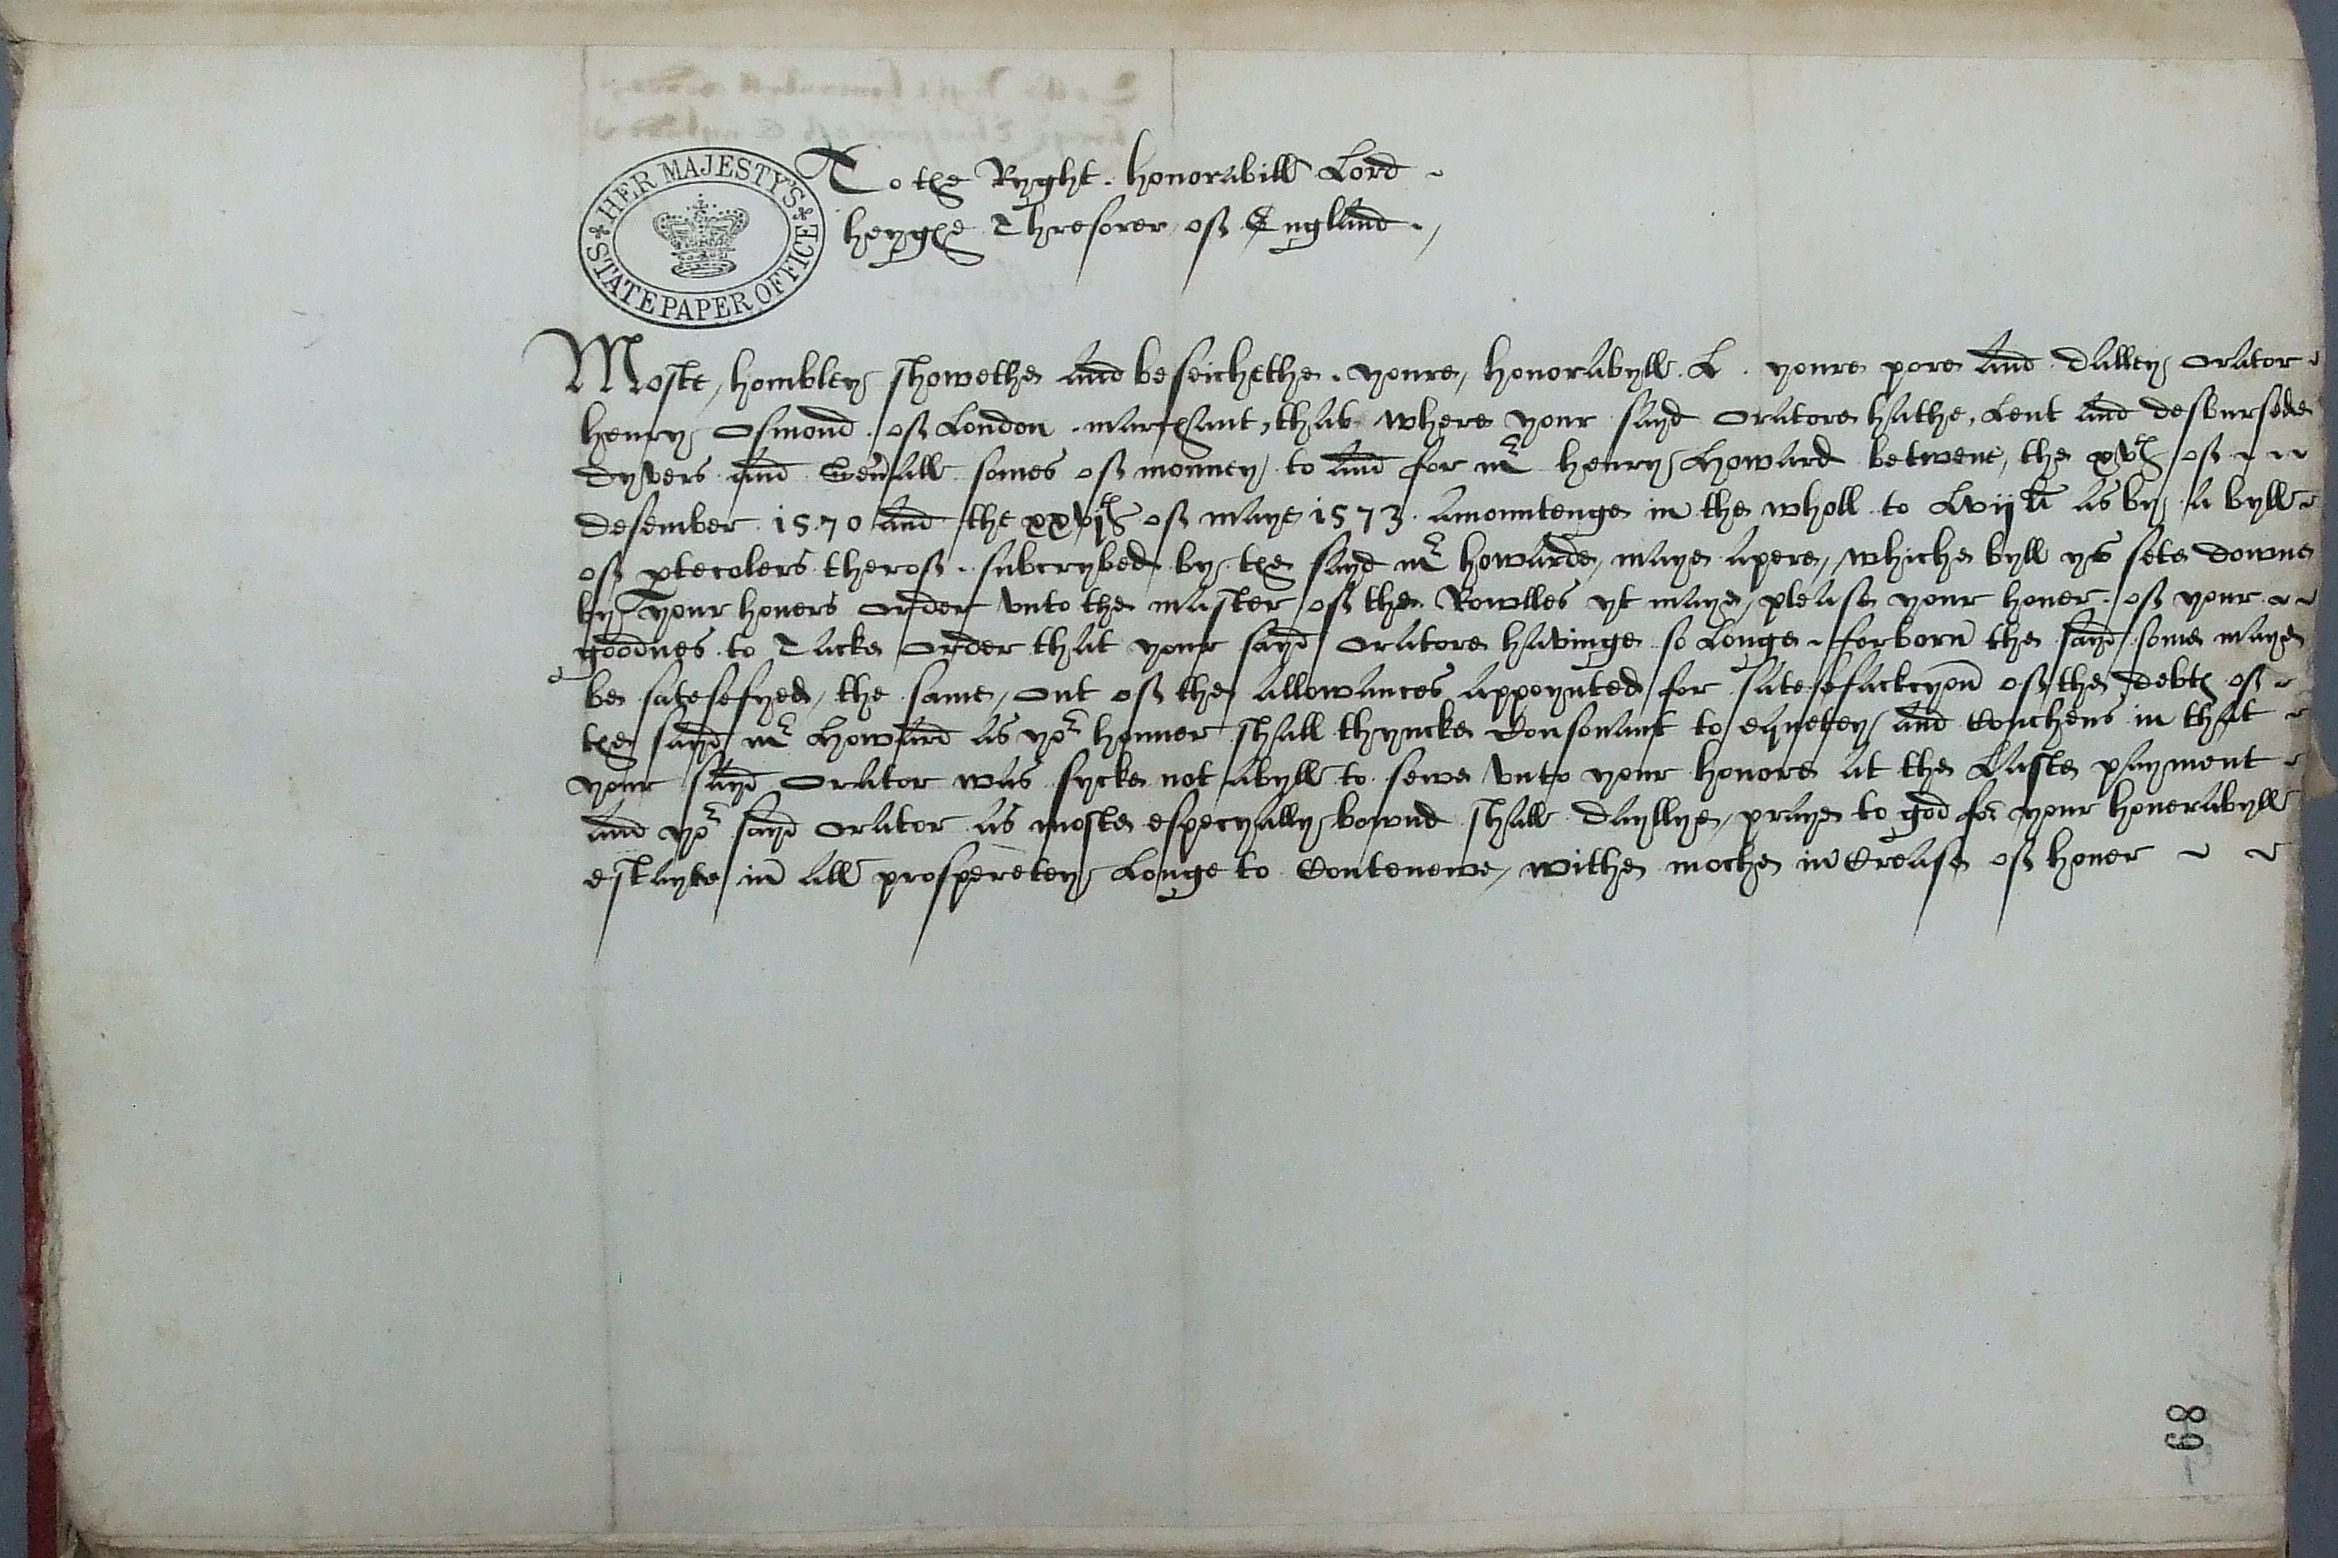 HER MAJESTY'S
STATE PAPER OFFICE
To the Ryght . honorabill Lord
heyghe Thresorer of England .
Moste, hombley showethe and beseichethe . youre, honorabyll . L . youre pore and dalley orator
henry Osmond . of London . marchant, that where your sayd oratore hathe, Lent and desbursede
dyvers and seu'all somes of monney to and for mr henry Howard betwene, the xvth of
desember 1570 and the xxvjth of maye 1573 . amountenge in the wholl to Lvij li as by a byll
of ptecolers therof . subcrybed by the sayd mr howarde, maye apere, whiche byll ys sete downe
by your honers order vnto the master of the Rowlles yt maye, please your honer . of your
goodnes to Tacke order that your sayd oratore havinge so Longe forborn the sayd some maye
be satesefyed, the same, out of the allowances appoynted for satesefackcyon of the debts of
the sayd mr Howard as yor honner shall thyncke Consonant to equetey and Conchens in that
your sayd orator was sycke not abyll to sewe vnto your honore at the Laste payment
and yor sayd orator as moste especyally bownd shall dayllye, praye to god for your honerabyll
estayte in all prosperetey Longe to Contenewe, withe moche in Crease of honer
68